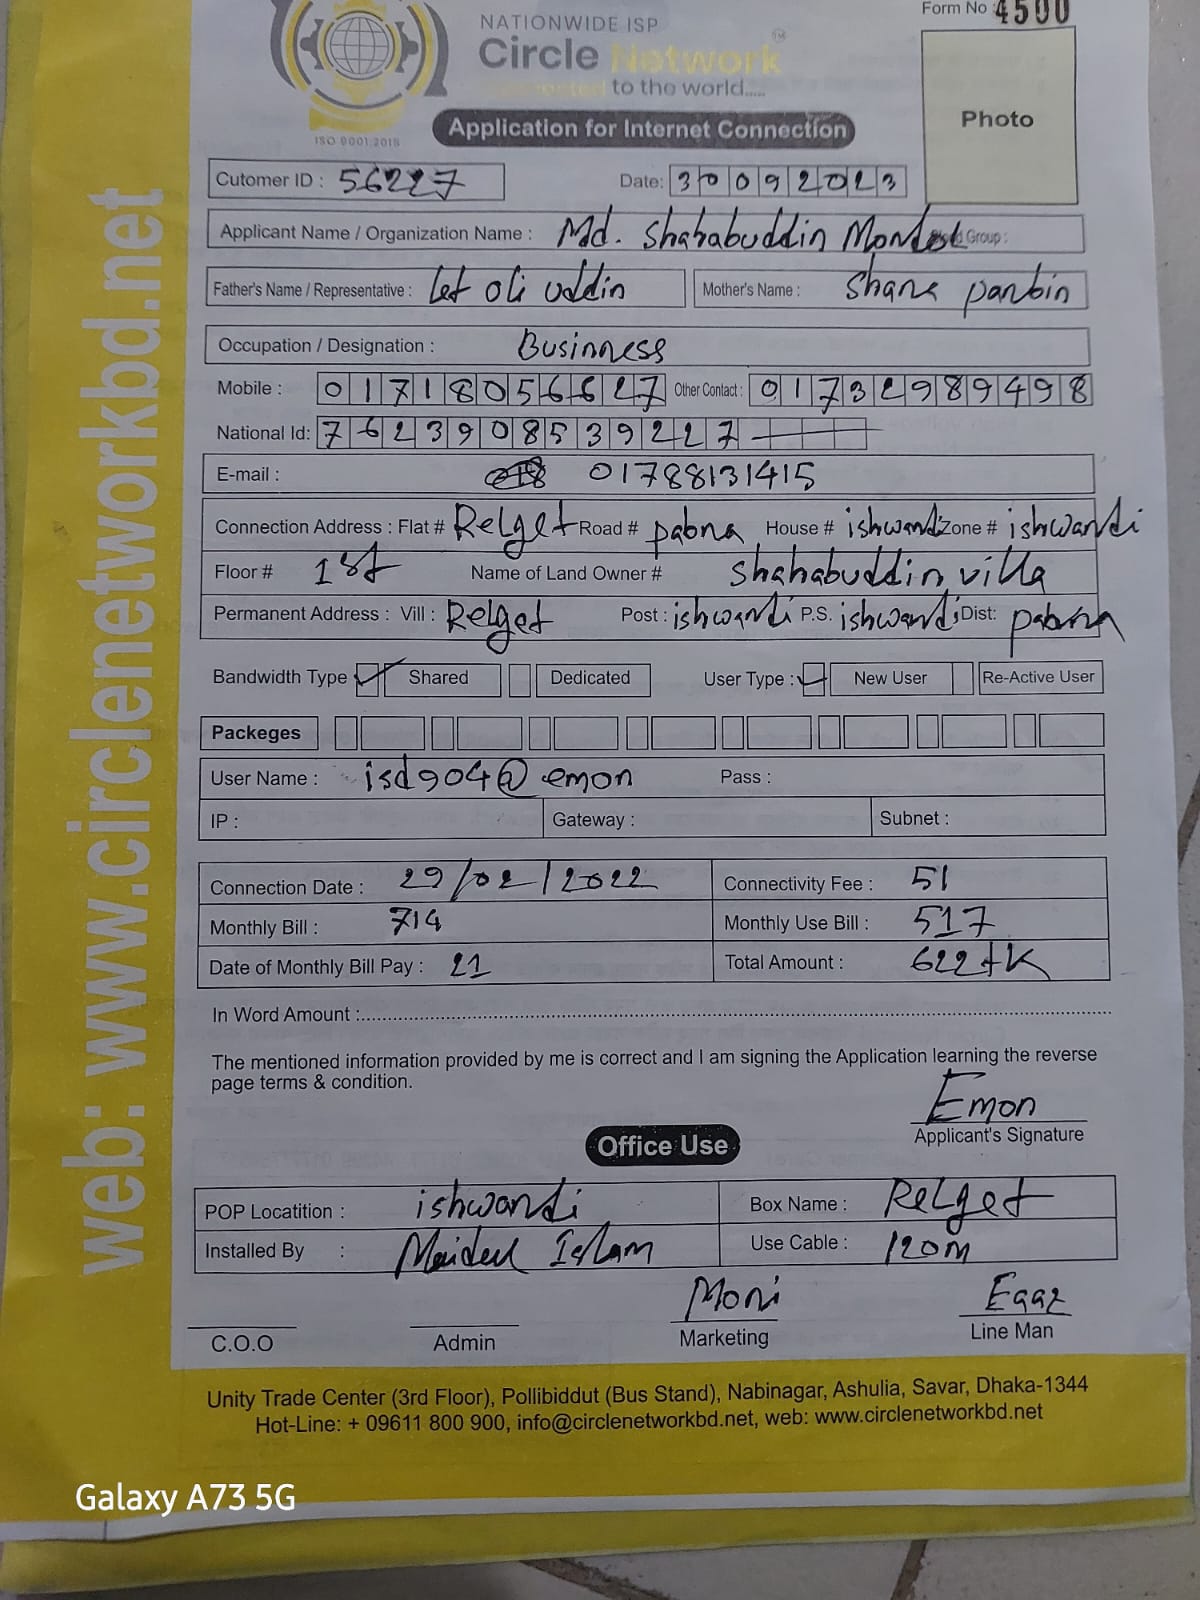 NATIONWIDE ISP
Form No : 4500
Circle Network TM
connected to the world.....
ISO 9001:2015
Photo
Application for Internet Connection
Cutomer ID : 56227 Date: 30092023
Applicant Name / Organization Name : Md. Shahabuddin Mondol Blood Group :
Father's Name / Representative : Let oli uddin Mother's Name : Shana parbin
Occupation / Designation : Businness
Mobile : 01718056627 Other Contact : 01732989498
National Id: 7623908539227
E-mail : 01788131415
Connection Address : Flat # Relget Road # pabna House # ishwardi Zone # ishwardi
Floor # 1st Name of Land Owner # Shahabuddin villa
Permanent Address : Vill : Relget Post : ishwardi P.S. ishwardi Dist: pabna
Bandwidth Type Shared Dedicated User Type : New User Re-Active User
Packeges
User Name : isd904@emon Pass :
IP : Gateway : Subnet :
Connection Date : 29/02/2022 Connectivity Fee : 51
Monthly Bill : 714 Monthly Use Bill : 517
Date of Monthly Bill Pay : 21 Total Amount : 622tK
In Word Amount :
The mentioned information provided by me is correct and I am signing the Application learning the reverse
page terms & condition.
Emon
Applicant's Signature
Office Use
POP Locatition : ishwardi Box Name : Relget
Installed By : Islam Use Cable : 120m
Moni
C.O.O Admin Marketing Line Man
Unity Trade Center (3rd Floor), Pollibiddut (Bus Stand), Nabinagar, Ashulia, Savar, Dhaka-1344
Hot-Line: + 09611 800 900, info@circlenetworkbd.net, web: www.circlenetworkbd.net
web: www.circlenetworkbd.net
Galaxy A73 5G